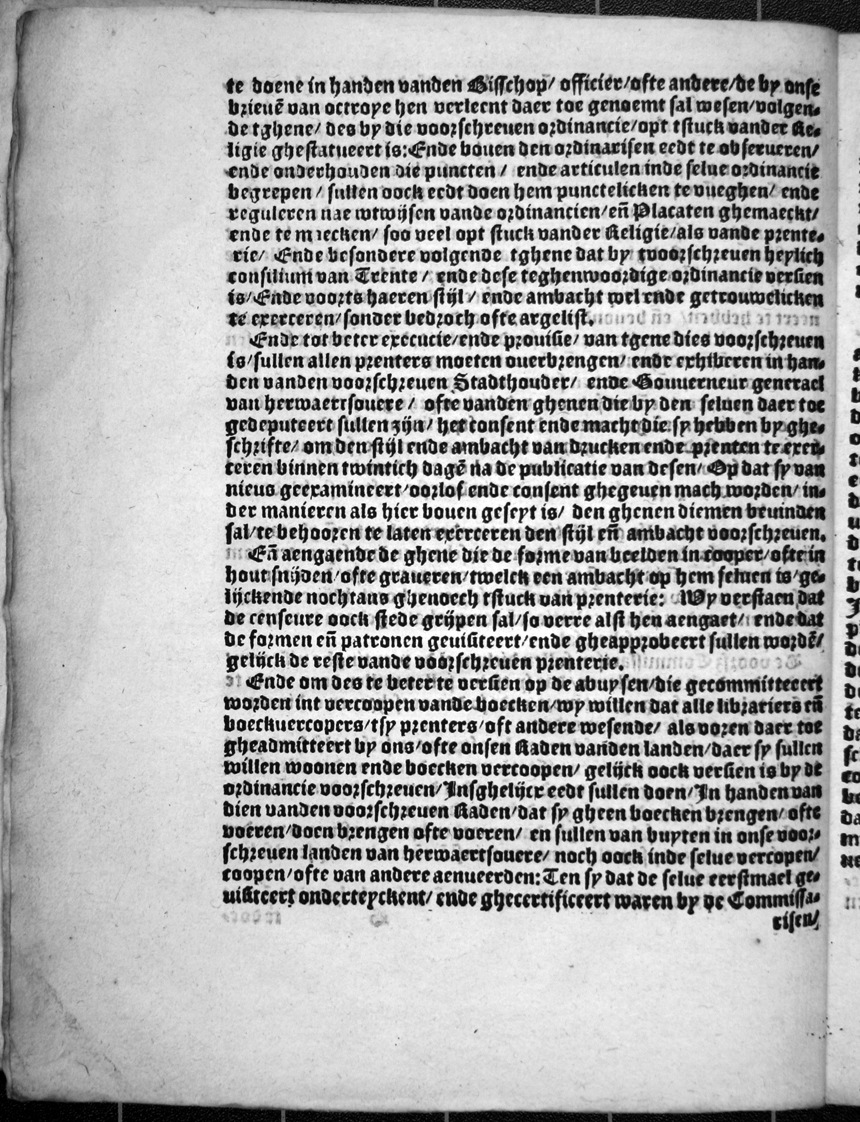 te doene in handen vanden Bisschop/ officier/ofte andere/de by onse
brieuē van octroye hen verleent daer toe genoemt sal wesen/volgen-
de tghene/ des by die voorschreuen ordinancie/opt tstuck vander Re-
ligie ghestatueert is: Ende bouen den ordinarisen eedt te obserueren/
ende onderhouden die puncten / ende articulen inde selue ordinancie
begrepen / sullen oock eedt doen hem punctelicken te vueghen/ ende
reguleren nae wtwijsen vande ordinancien/eñ Placaten ghemaeckt/
ende te maecken/ soo veel opt stuck vander Religie/als vande prente-
rie/ Ende besondere volgende tghene dat by tvoorschreuen heylich
consilium van Trente / ende dese teghenwoordige ordinancie versien
is/Ende voorts haeren stijl / ende ambacht wel ende getrouwelicken
te exerceren/sonder bedroch ofte argelist.
Ende tot beter execucie/ende prouisie/ van tgene dies voorschreuen
is/sullen allen prenters moeten ouerbrengen/ ende exhiberen in han-
den vanden voorschreuen Stadthouder/ ende Gouuerneur generael
van herwaertsouere / ofte vanden ghenen die by den seluen daer toe
gedeputeert sullen zijn/ het consent ende macht die sy hebben by ghe-
schrifte/ om den stijl ende ambacht van drucken ende prenten te exer-
teren binnen twintich dagē na de publicatie van desen/ Op dat sy van
nieus geexamineert/oorlof ende consent ghegeuen mach worden/ in-
der manieren als hier bouen geseyt is/ den ghenen diemen beuinden
sal/te behooren te laten exerceren den stijl eñ ambacht voorschreuen.
Eñ aengaende de ghene die de forme van beelden in cooper/ofte in
hout snijden/ofte graueren/twelck een ambacht op hem seluen is/ge-
lijckende nochtans ghenoech tstuck van prenterie: Wy verstaen dat
de censeure oock stede grijpen sal/so verre alst hen aengaet/ ende dat
de formen eñ patronen geuisiteert/ende gheapprobeert sullen wordē/
gelijck de reste vande voorschreuen prenterie.
Ende om des te beter te versien op de abuysen/die gecommitteeert
worden int vercoopen vande boecken/wy willen dat alle librariers eñ
boeckuercopers/tsy prenters/oft andere wesende/ als voren daer toe
gheadmitteert by ons/ofte onsen Raden vanden landen/daer sy sullen
willen woonen ende boecken vercoopen/ gelijck oock versien is by de
ordinancie voorschreuen/Insghelijcx eedt sullen doen/In handen van
dien vanden voorschreuen Raden/dat sy gheen boecken brengen/ ofte
voeren/doen brengen ofte voeren/ en sullen van buyten in onse voor-
schreuen landen van herwaertsouere/ noch oock inde selue vercopen/
coopen/ofte van andere aenueerden: Ten sy dat de selue eerstmael ge-
uisiteert onderteyckent/ ende ghecertificeert waren by de Commissa-
risen/